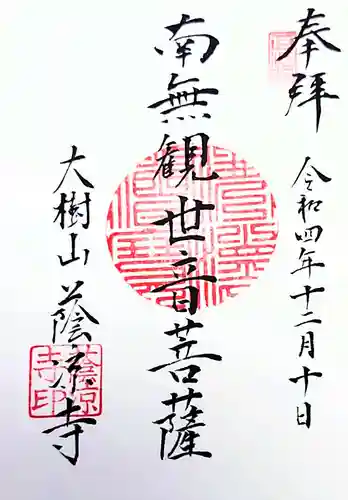 奉拝
令和四年十二月十日
南無観世音菩薩
大樹山
蔭凉寺
蔭凉
寺印